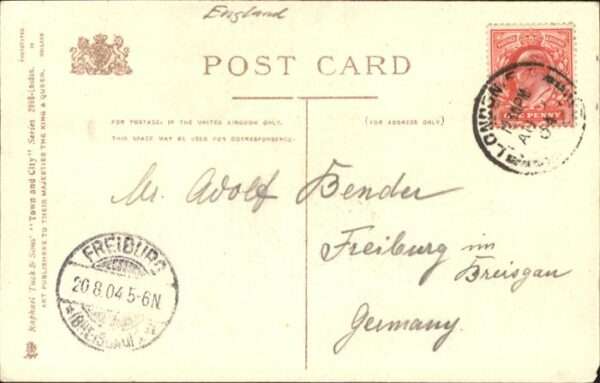 England
POST CARD
FOR POSTAGE IN THE UNITED KINGDOM ONLY.
THIS SPACE MAY BE USED FOR CORRESPONDENCE.
(FOR ADDRESS ONLY)
ONE PENNY
LONDON
Mr. Adolf Bender
Freiburg im
Breisgau
Germany.
FREIBURG
20 8.04 5-6N
(BREISGAU)
Raphael Tuck & Sons' "Town and City" Series 2
ART PUBLISHERS TO THEIR MAJESTIES THE KING & QUEEN.